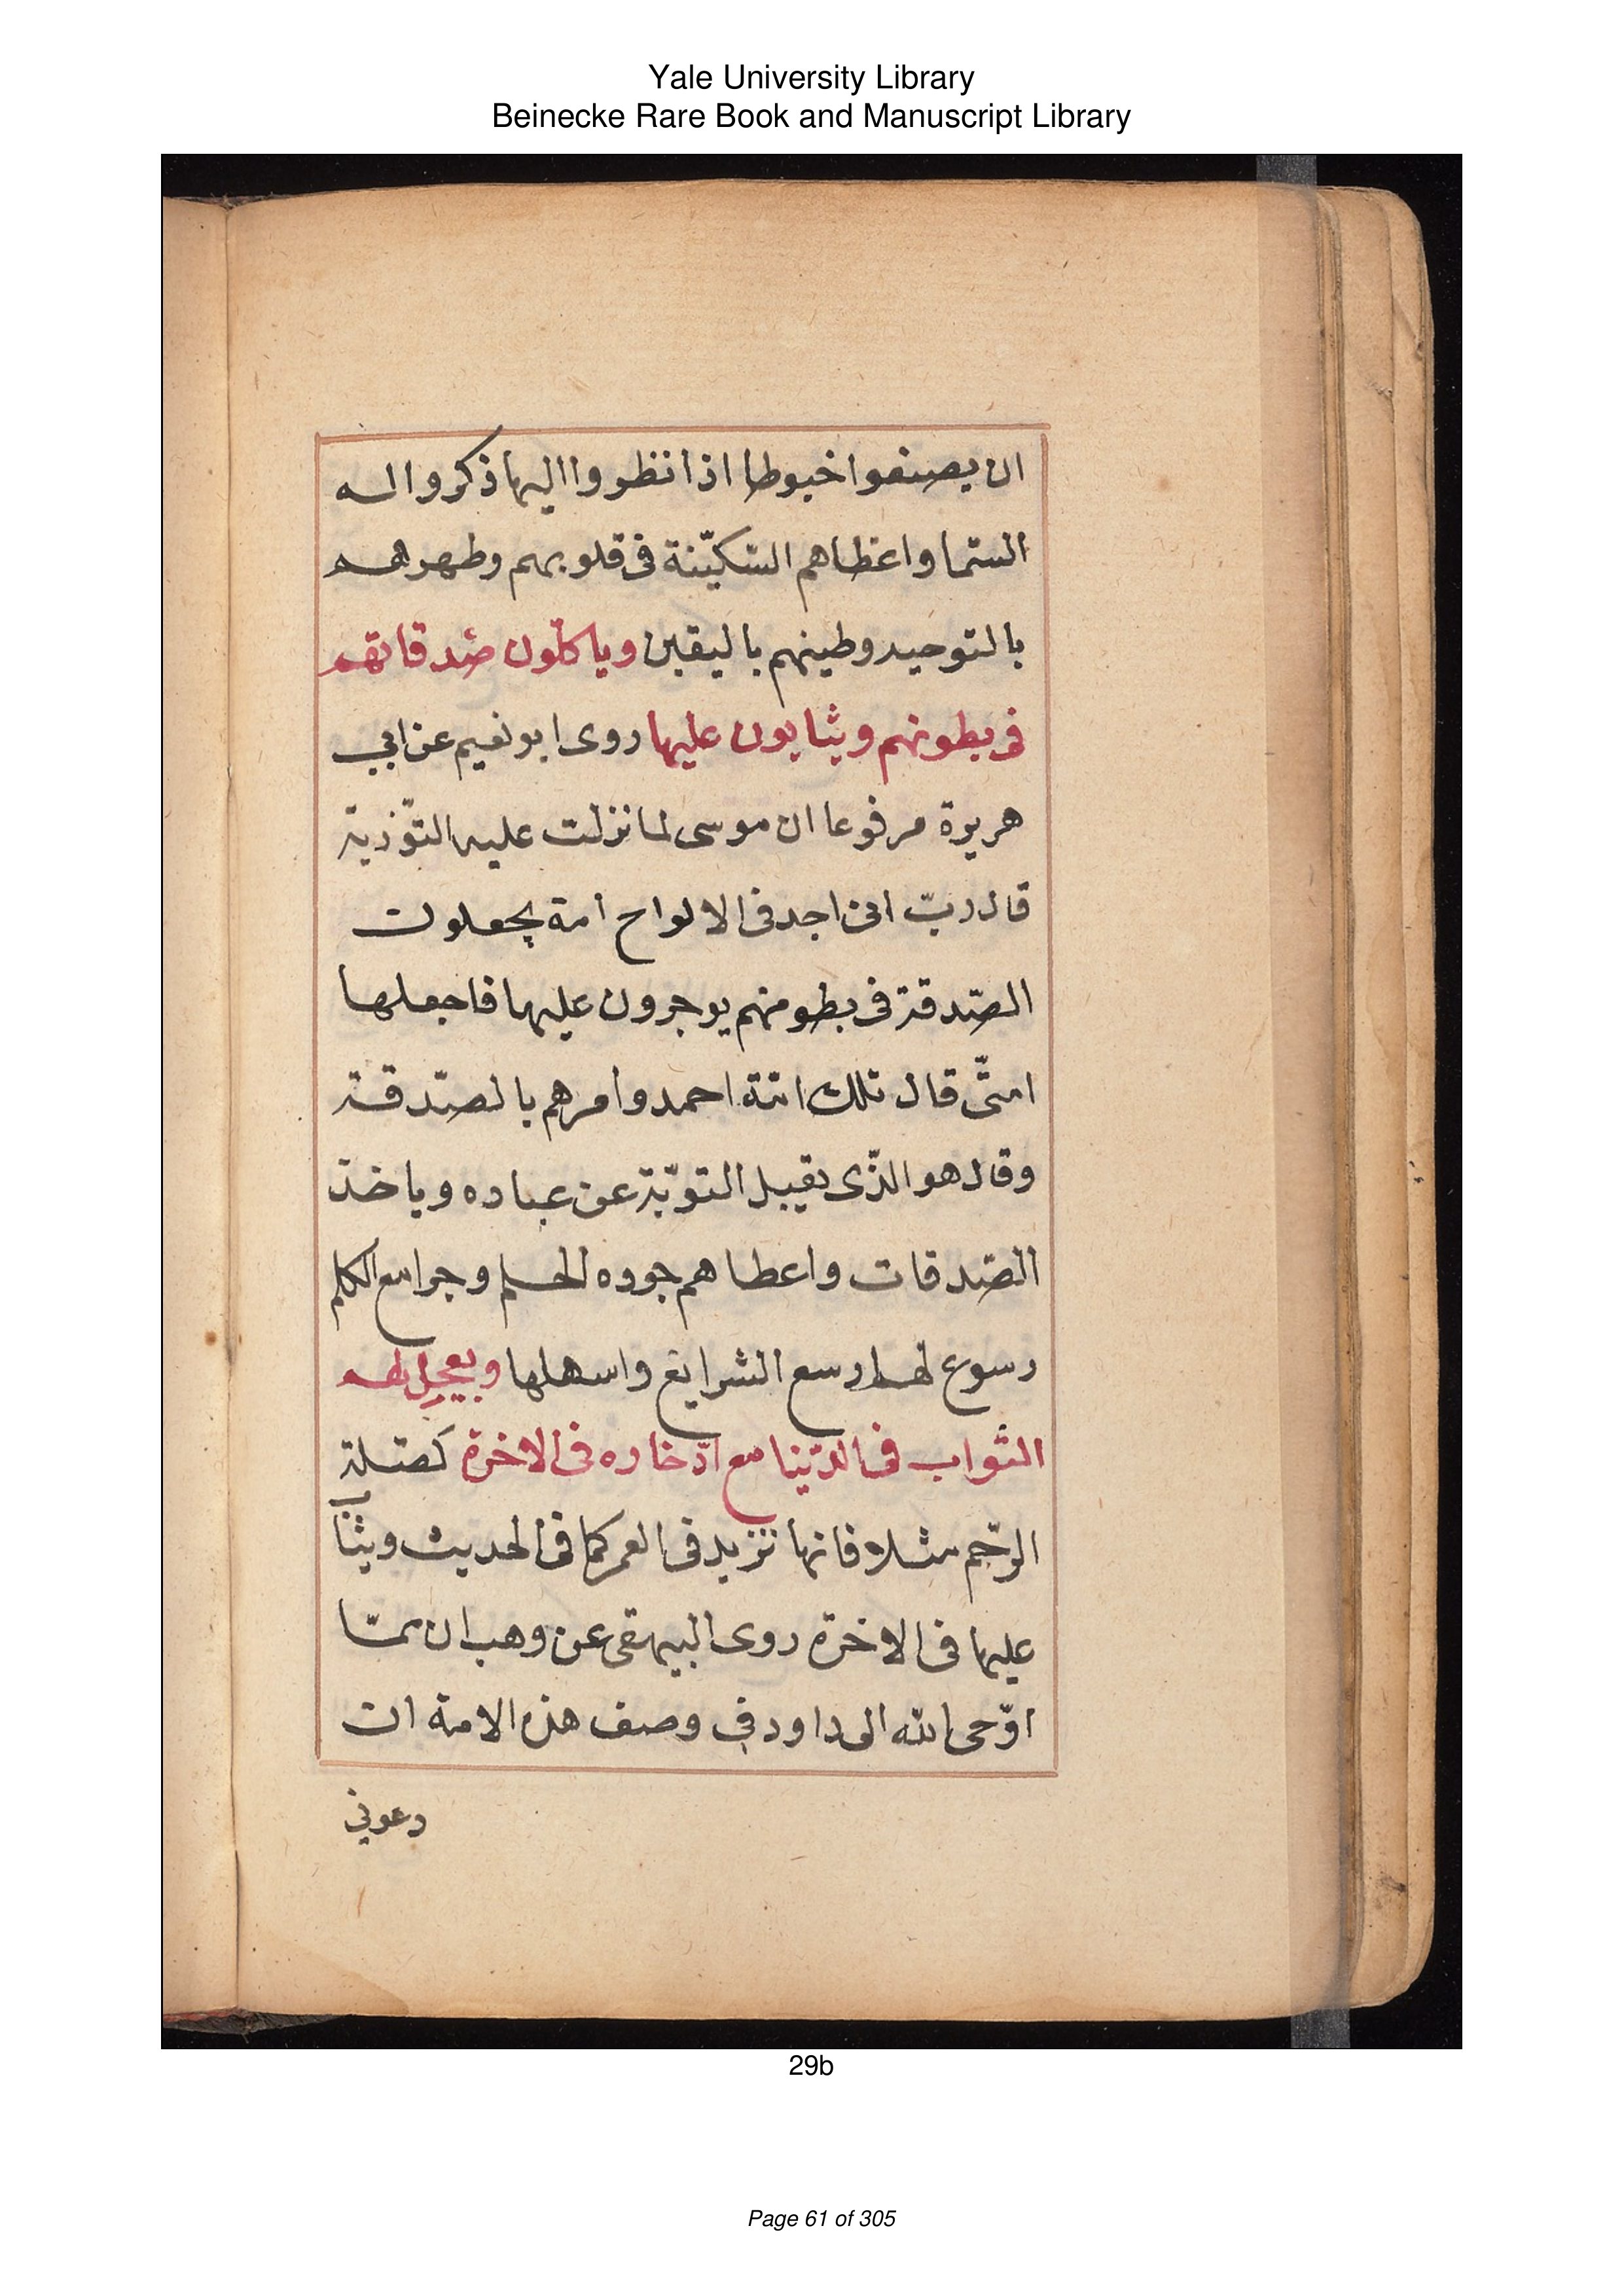 Yale University Library
Beinecke Rare Book and Manuscript Library
ان يصنفوا خيوطا اذا نظروا اليها ذكروا اله
السّما واعطاهم السّكيّنة فى قلوبهم وطهرهم
بالتوحيد وطينهم باليقين وياكلون صَدقاتهم
فى بطونهم ويثابون عليها روى ابو نعيم عن ابي
هريرة مرفوعا ان موسى لما نزلت عليه التّوْرية
قال ربّ انى اجد فى الالواح امة يجعلون
الصّدقة فى بطومنهم يوجرون عليها فاجعلها
امتّى قال تلك امّة احمد وامرهم بالصّدقة
وقال هو الذّى يقبل التوّبة عن عباده وياخذ
الصّدقات واعطاهم جوده الحلم وجوامع الكلم
وسوع لهم اوسع الشرايع واسهلها ويعجل لهم
الثواب فى الدّينا مع ادّخاره فى الاخرة كصّلة
الرّحم مثلا فانها تزيد فى العمر كما فى الحديث ويثاب
عليها فى الاخرة روى البيهقى عن وهب ان ممّا
اوّحى الله الى داود فى وصف هذه الامة ان
دعونى
29b
Page 61 of 305